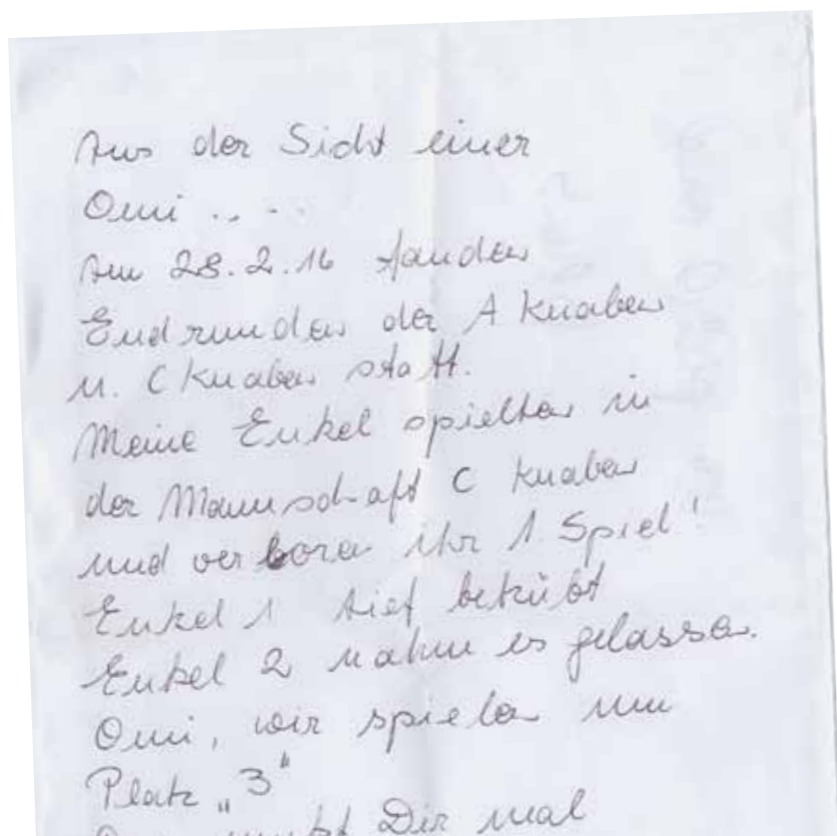 Aus der Sicht einer
Omi ....
Am 28.2.16 fanden
Endrunden der A Knaben
u. C Knaben statt.
Meine Enkel spielten in
der Mannschaft C Knaben
und verloren ihr 1 Spiel!
Enkel 1 tief betrübt
Enkel 2 nahm es gelassen.
Omi, wir spielen um
Platz „3“
Dir mal